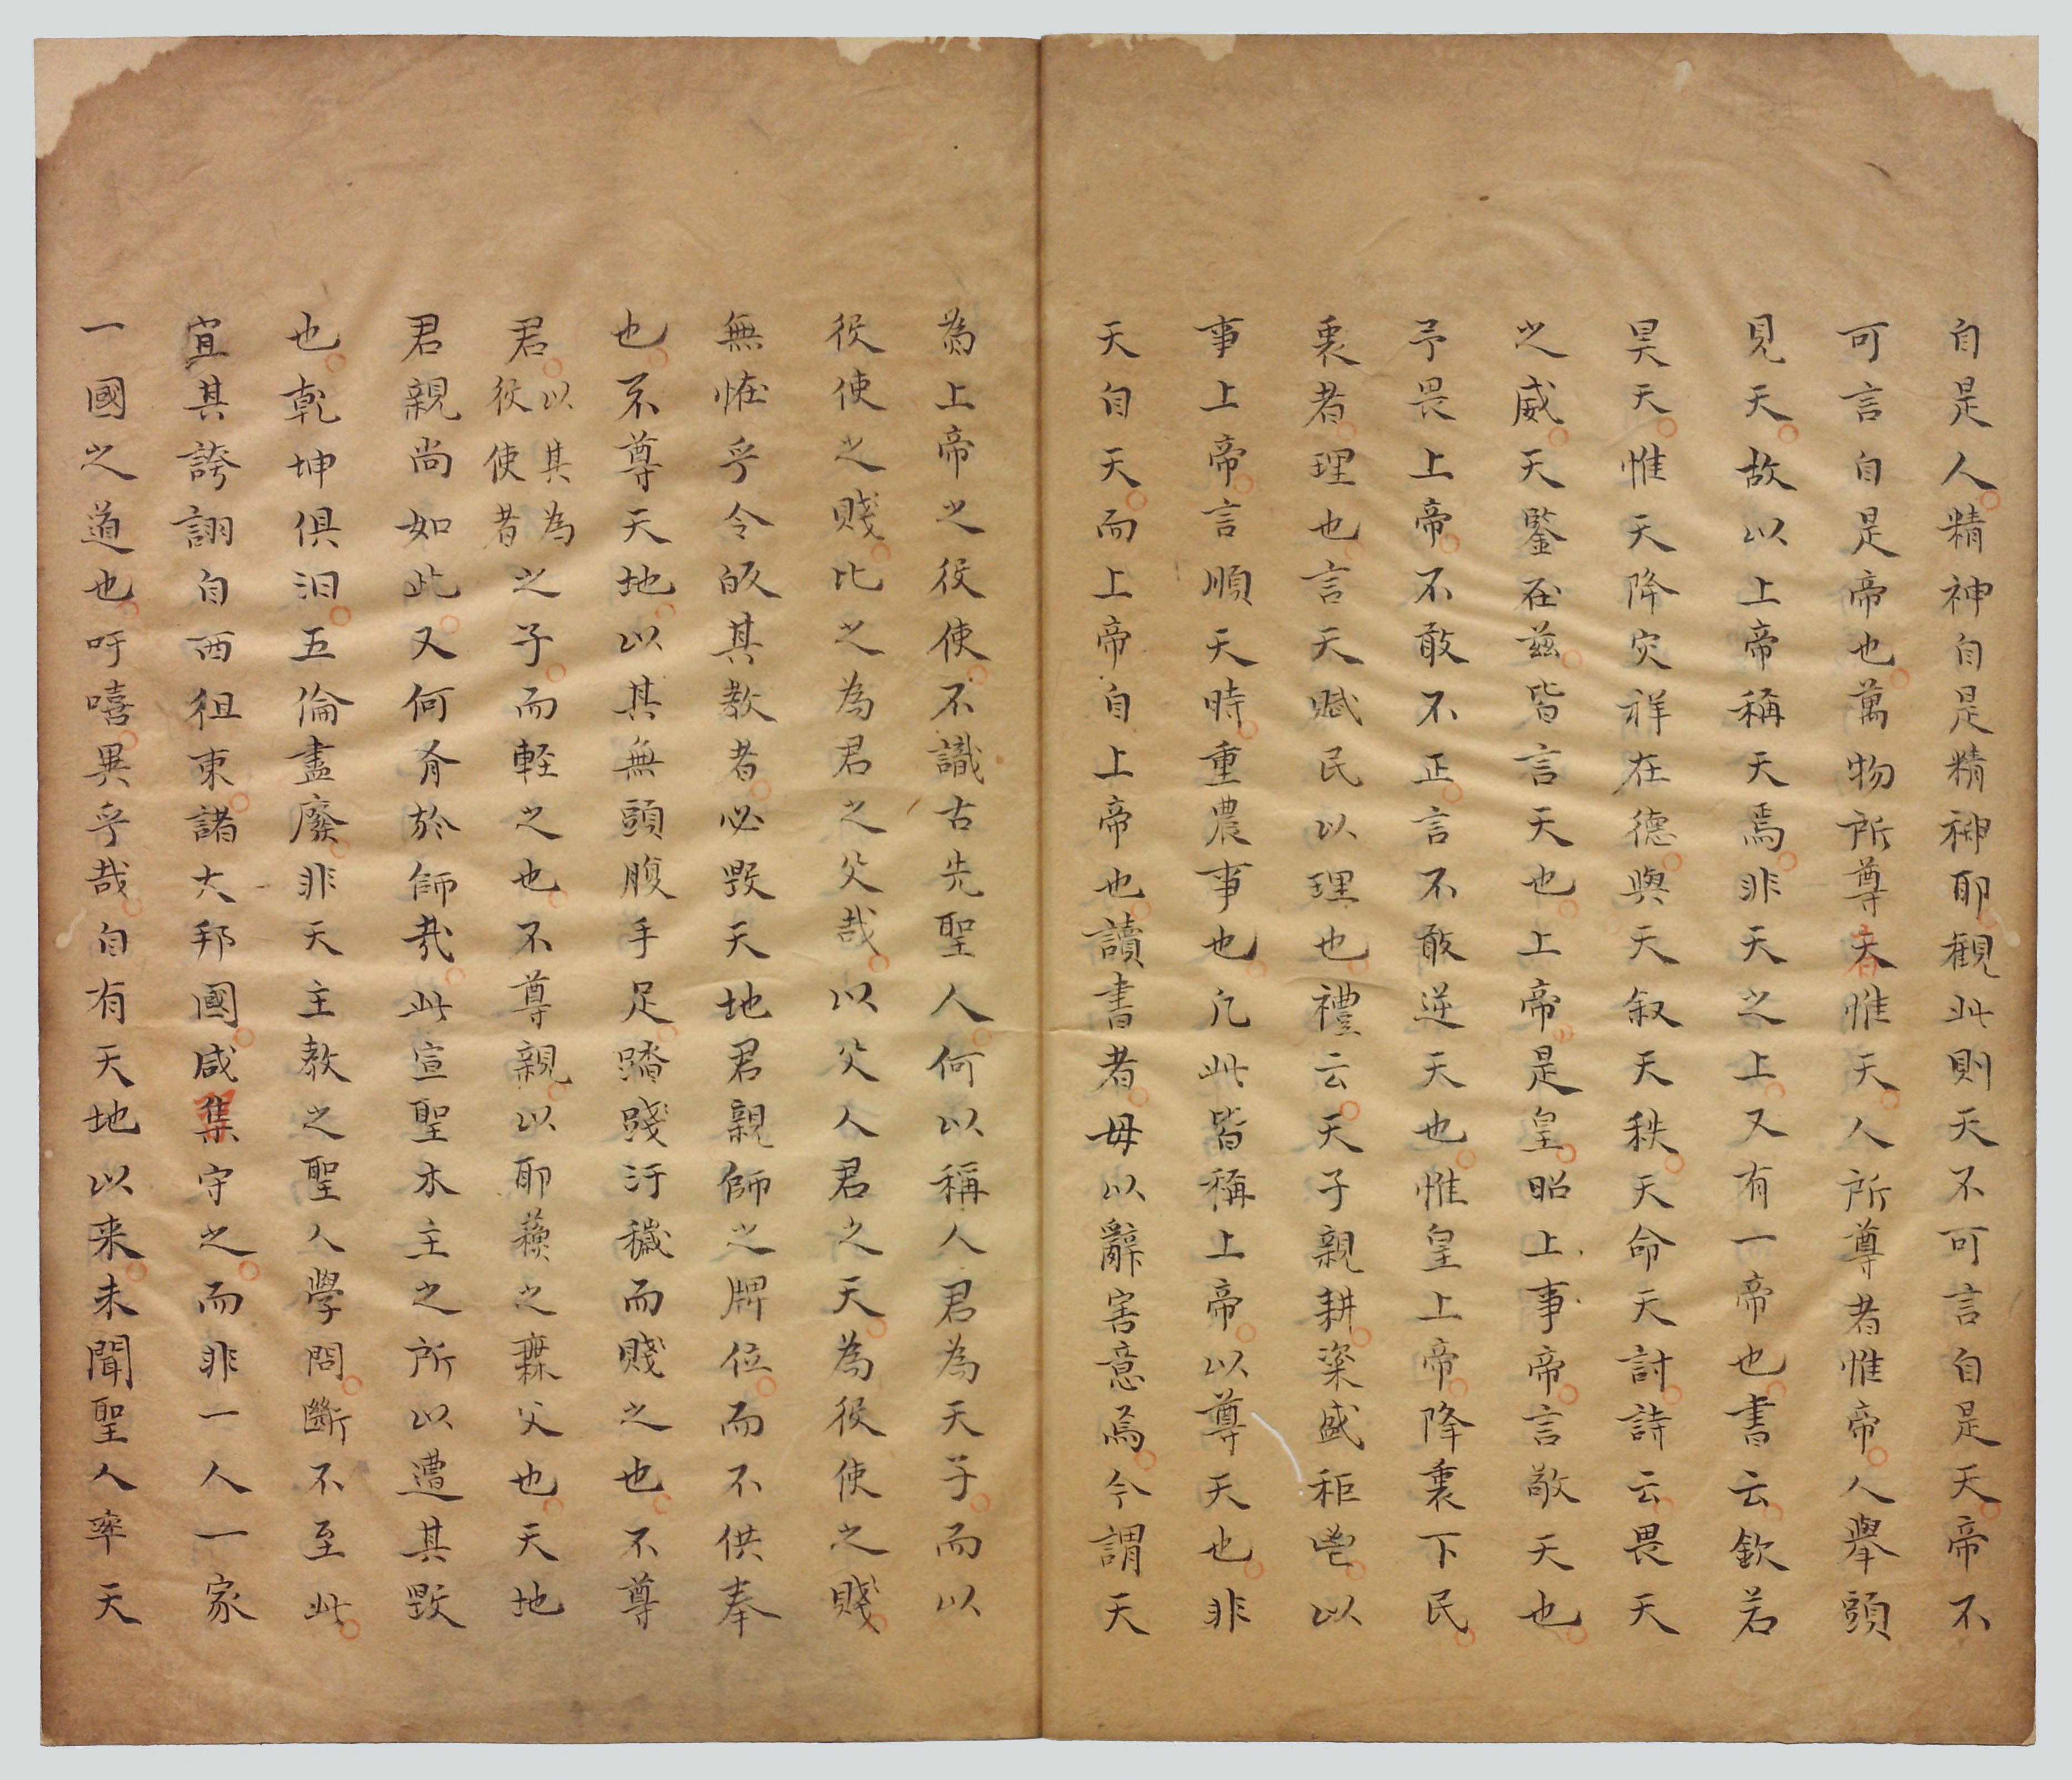 自是人精神自是精神耶觀此則天不可言自是天帝不
可言自是帝也萬物所尊者惟天人所尊者惟帝人舉頭
見天故以上帝稱天焉非天之上又有一帝也書云欽若
昊天惟天降灾祥在德與天叙天秩天命天討詩云畏天
之威天鑒在茲皆言天也上帝是皇昭上事帝言敬天也
予畏上帝不敢不正言不敢逆天也惟皇上帝降衷下民
衷者理也言天賦民以理也禮云天子親耕粢盛秬鬯以
事上帝言順天時重農事也凡此皆稱上帝以尊天也非
天自天而上帝自上帝也讀書者毋以辭害意焉今謂天
為上帝之役使不識古先聖人何以稱人君為天子而以
役使之賤比之為君之父哉以父人君之天為役使之賤
無怪乎令皈其教者必毀天地君親師之牌位而不供奉
也不尊天地以其無頭腹手足踏踐汙穢而賤之也不尊
君以其為役使者之子而輕之也不尊親以耶蘇之無父也天地
君親尚如此又何有於師哉此宣聖木主之所以遭其毀
也乾坤俱汩五倫盡廢非天主教之聖人學問斷不至此
宜其誇詡自西徂東諸大邦國咸集守之而非一人一家
一國之道也吁嘻異乎哉自有天地以来未聞聖人率天